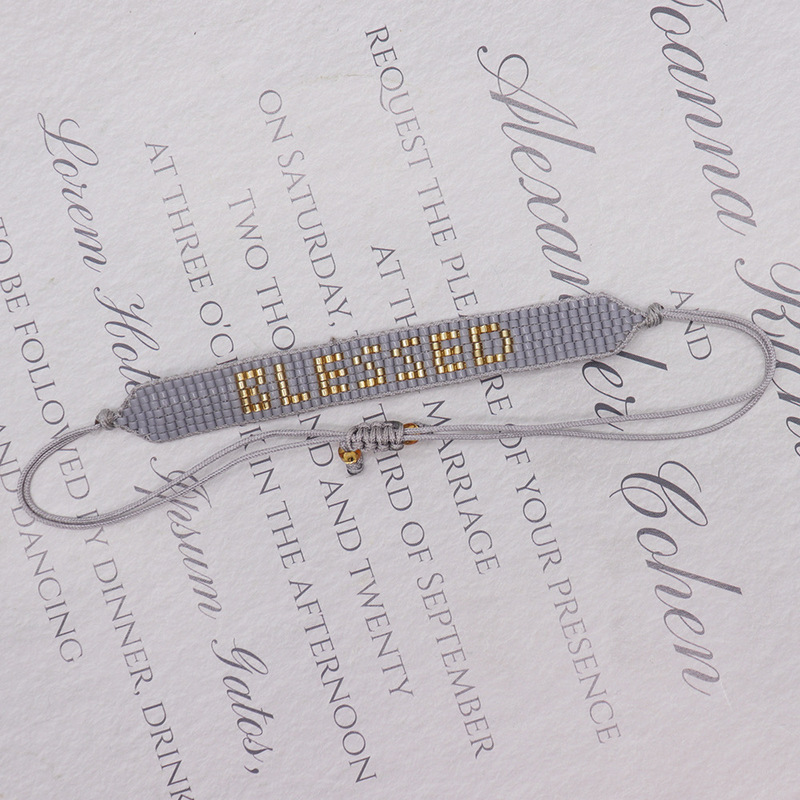 Joanna
AND
Alexander Cohen
REQUEST THE PLE RE OF YOUR PRESENCE
AT TH MARRIAGE
ON SATURDAY, IRD OF SEPTEMBER
TWO THO ND AND TWENTY
AT THREE O'C IN THE AFTERNOON
Lorem Hot
Ipsum Gatos,
TO BE FOLLOWED BY DINNER, DRINK
AND DANCING
BLESSED